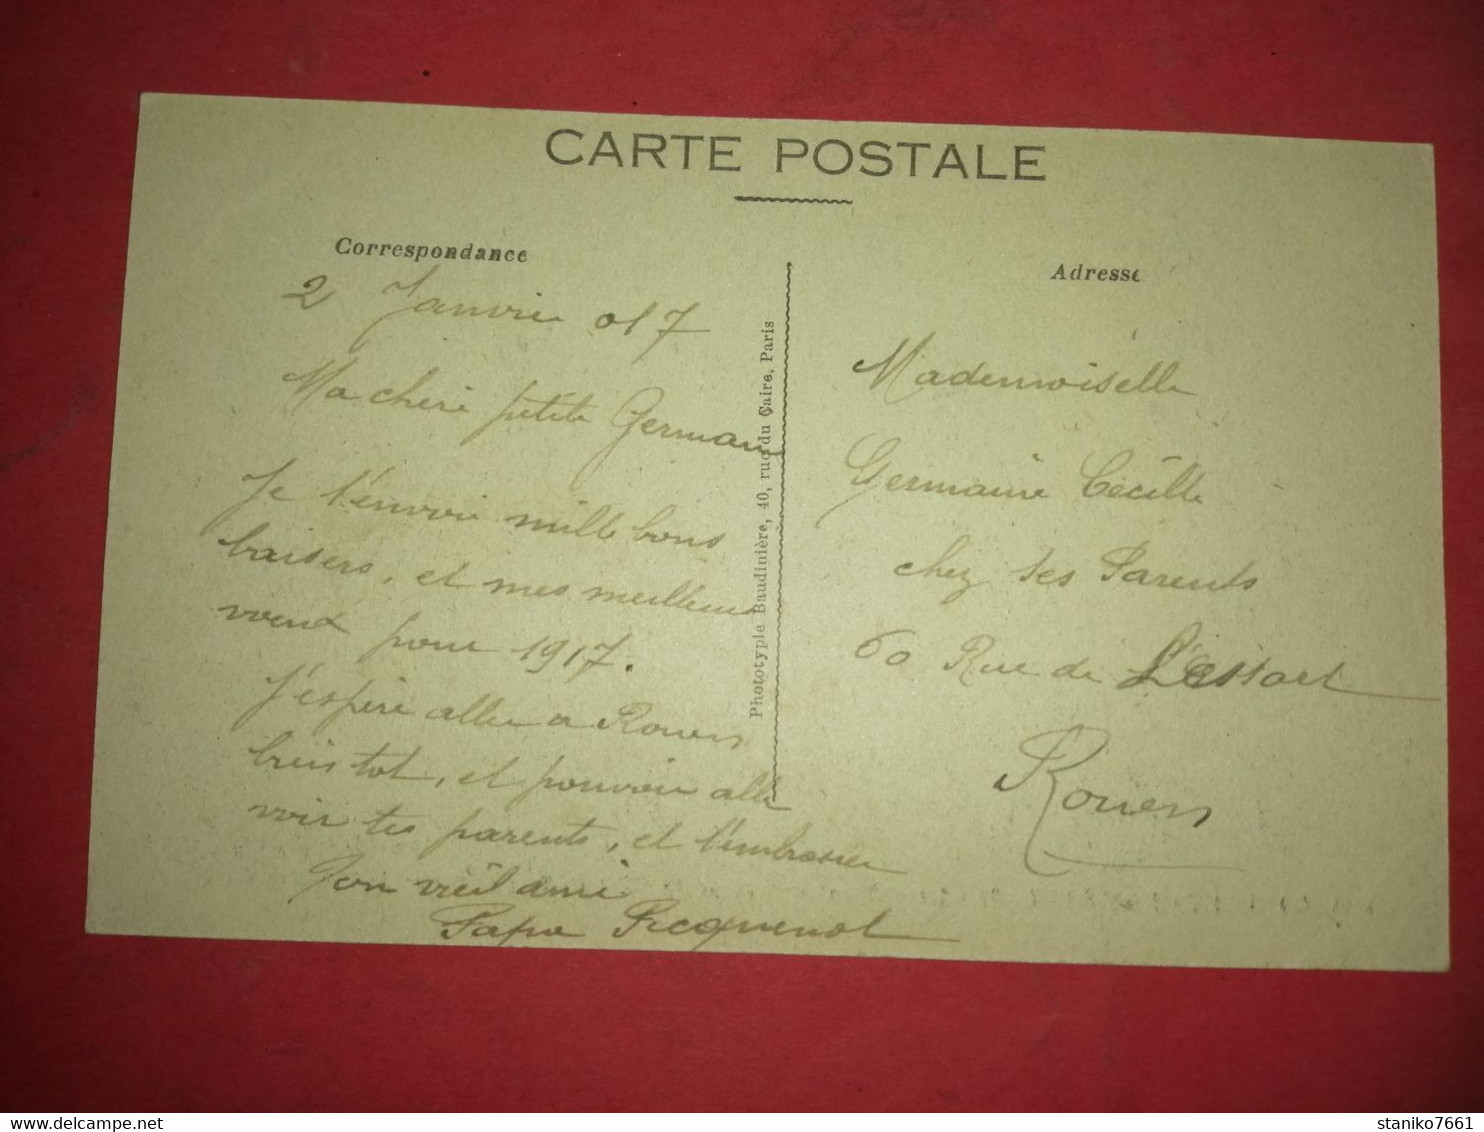 CARTE POSTALE
Correspondance
2 Janvier 917
Ma chère petite Germaine
Je t'envoie mille bons
baisers, et mes meilleurs
voeux pour 1917.
J'espère aller a Rouen
bientot, et pouvoir aller
voir tes parents, et t'embrasser
Ton vieil ami
Papa Picquenot
Phototypie Baudinière, 40, rue du Caire, Paris
Adresse
Mademoiselle
Germaine Cécille
chez ses Parents
60 Rue de Lessart
Rouen
staniko7661 delcampe.net